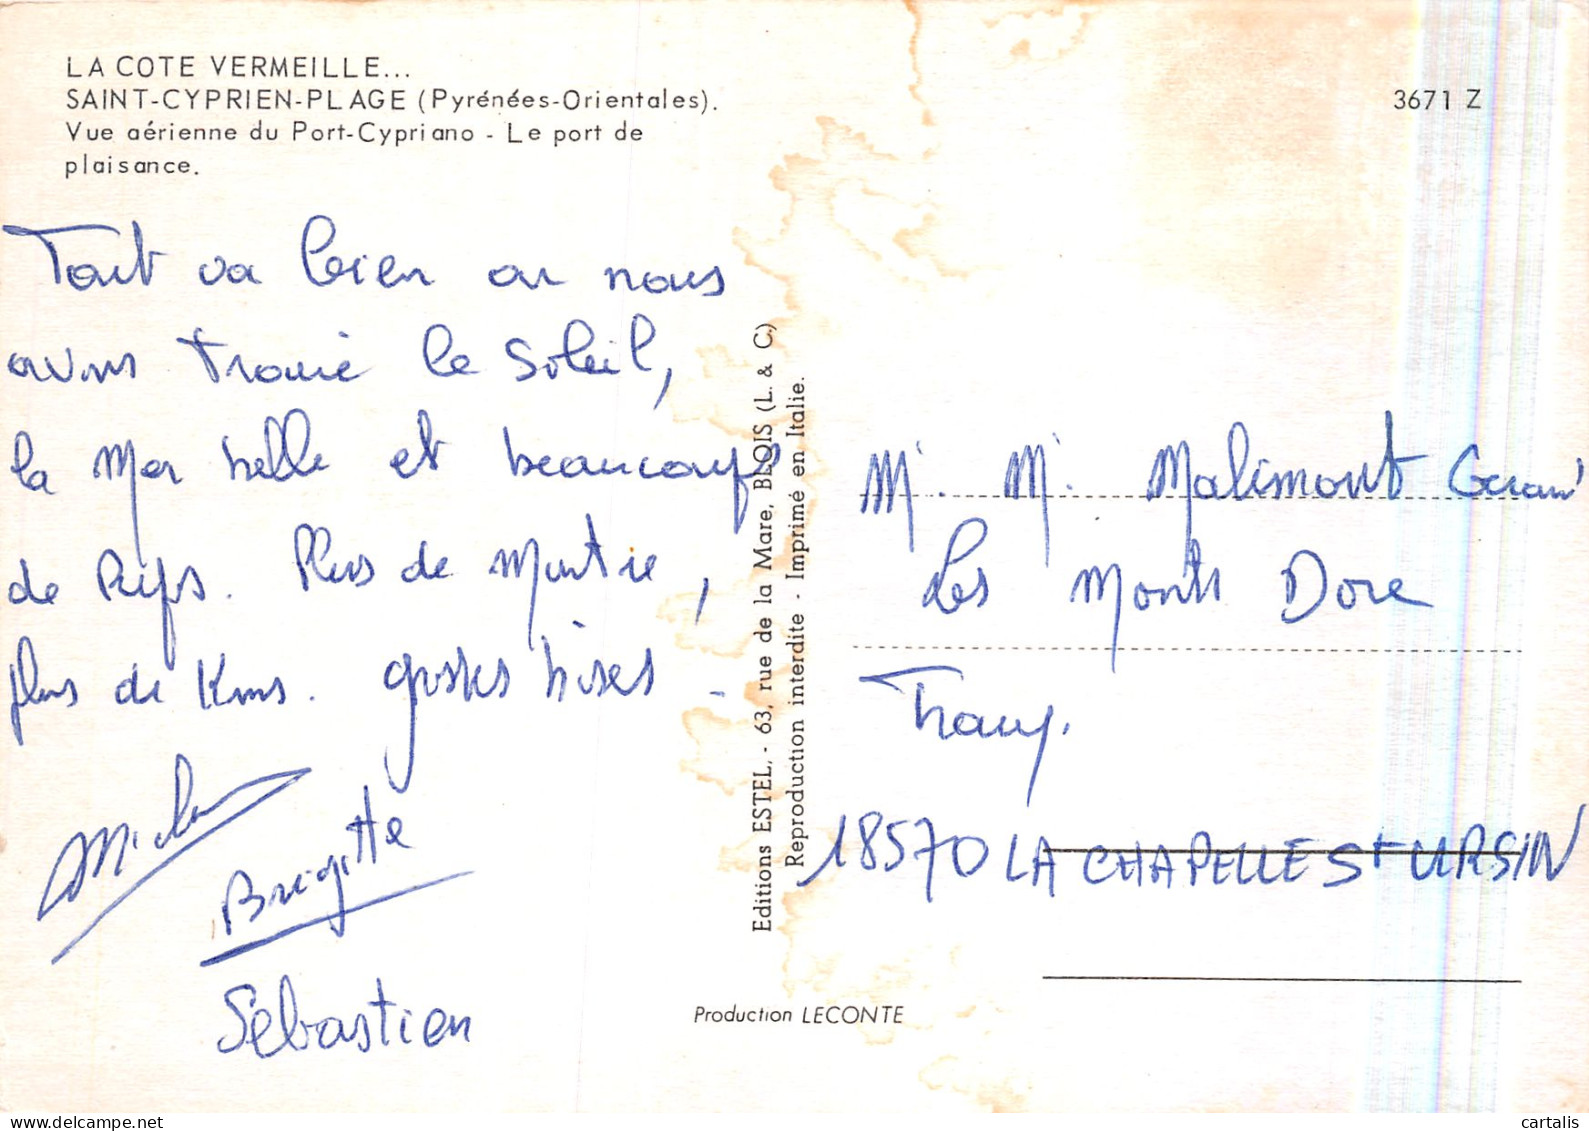 LA COTE VERMEILLE...
SAINT-CYPRIEN-PLAGE (Pyrénées-Orientales).
Vue aérienne du Port-Cypriano - Le port de
plaisance.
3671 Z
Tout va bien on nous
avons trouvé le soleil,
la mer belle et beaucoup
de Kifs. Plus de montre,
plus de Kms. grosses bises
Michel
Brigitte
Sébastien
Editions ESTEL, - 63, rue de la Mare, BLOIS (L. & C.)
Reproduction interdite - Imprimé en Italie.
Production LECONTE
M. M. Malimont
Les Monts Dore
18570 LA CHAPELLE St URSIN
cartalis